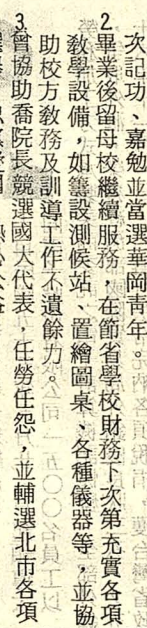 次記功、嘉勉並當選華岡青年。
2.畢業後留母校繼續服務，在節省學校財務下次第充實各項
教學設備，如籌設測候站、置繪圖桌、各種儀器等，並協
助校方教務及訓導工作不遺餘力。
3.曾協助喬院長競選國大代表，任勞任怨，並輔選北市各項